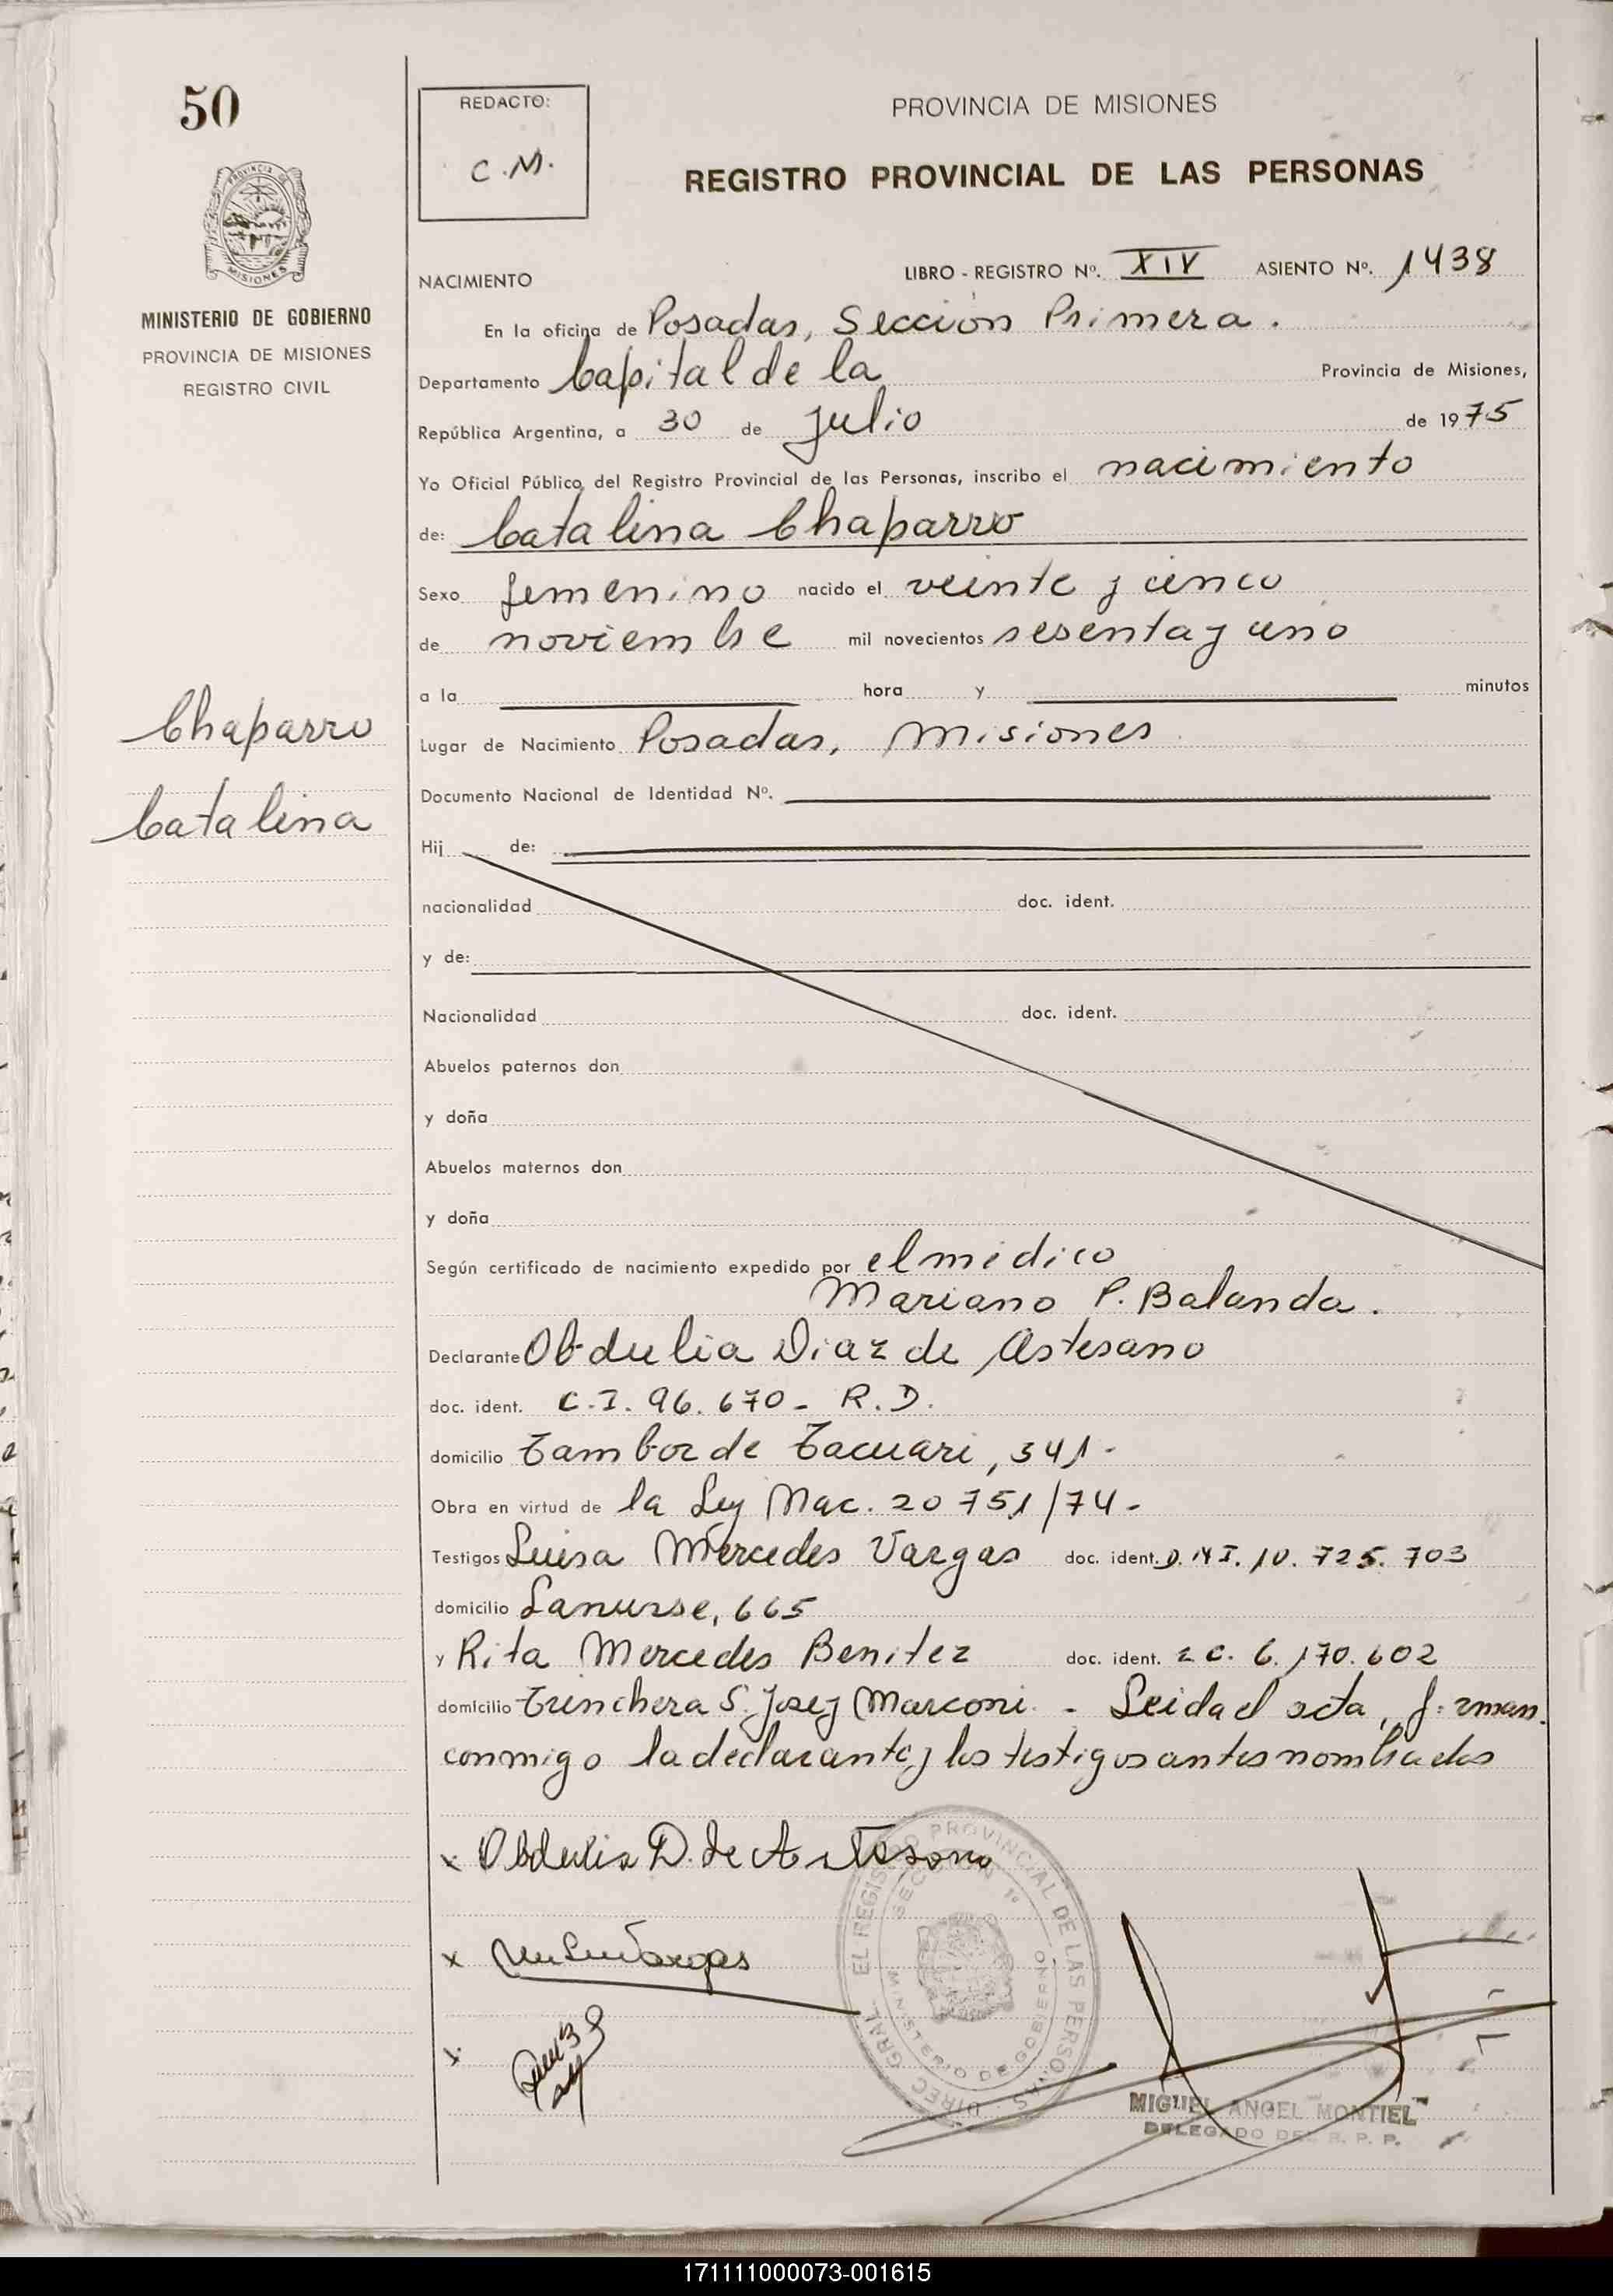 50
REDACTO:
C.M.
PROVINCIA DE MISIONES
REGISTRO PROVINCIAL DE LAS PERSONAS
PROVINCIA DE
MISIONES
MINISTERIO DE GOBIERNO
PROVINCIA DE MISIONES
REGISTRO CIVIL
NACIMIENTO
LIBRO - REGISTRO Nº. XIV ASIENTO Nº. 1438
En la oficina de Posadas, Sección Primera.
Departamento Capital de la Provincia de Misiones,
República Argentina, a 30 de Julio de 1975
Yo Oficial Público del Registro Provincial de las Personas, inscribo el nacimiento
de: Catalina Chaparro
Sexo femenino nacido el veinte y cinco
de noviembre mil novecientos sesenta y uno
a la hora y minutos
Chaparro
Catalina
Lugar de Nacimiento Posadas, Misiones
Documento Nacional de Identidad Nº.
Hij de:
nacionalidad doc. ident.
y de:
Nacionalidad doc. ident.
Abuelos paternos don
y doña
Abuelos maternos don
y doña
Según certificado de nacimiento expedido por el médico
Mariano P. Balanda.
Declarante Obdulia Diaz de Astesano
doc. ident. C.I. 96.670 - R.D.
domicilio Tambor de Tacuari, 341 -
Obra en virtud de la Ley Nac. 20751/74 -
Testigos Luisa Mercedes Vargas doc. ident. D.N.I. 10.725.703
domicilio Lanusse, 665
y Rita Mercedes Benitez doc. ident. LC. 6.170.602
domicilio Trinchera S. José y Marconi. - Leida el acta, firman
conmigo la declarante y los testigos antes nombrados
x Obdulia D. de Astesano
x Vargas
x
DIREC. GRAL. EL REGISTRO PROVINCIAL DE LAS PERSONAS
SECCION 1ª
MINISTERIO DE GOBIERNO
MIGUEL ANGEL MONTIEL
DELEGADO DEL R. P. P.
171111000073-001615